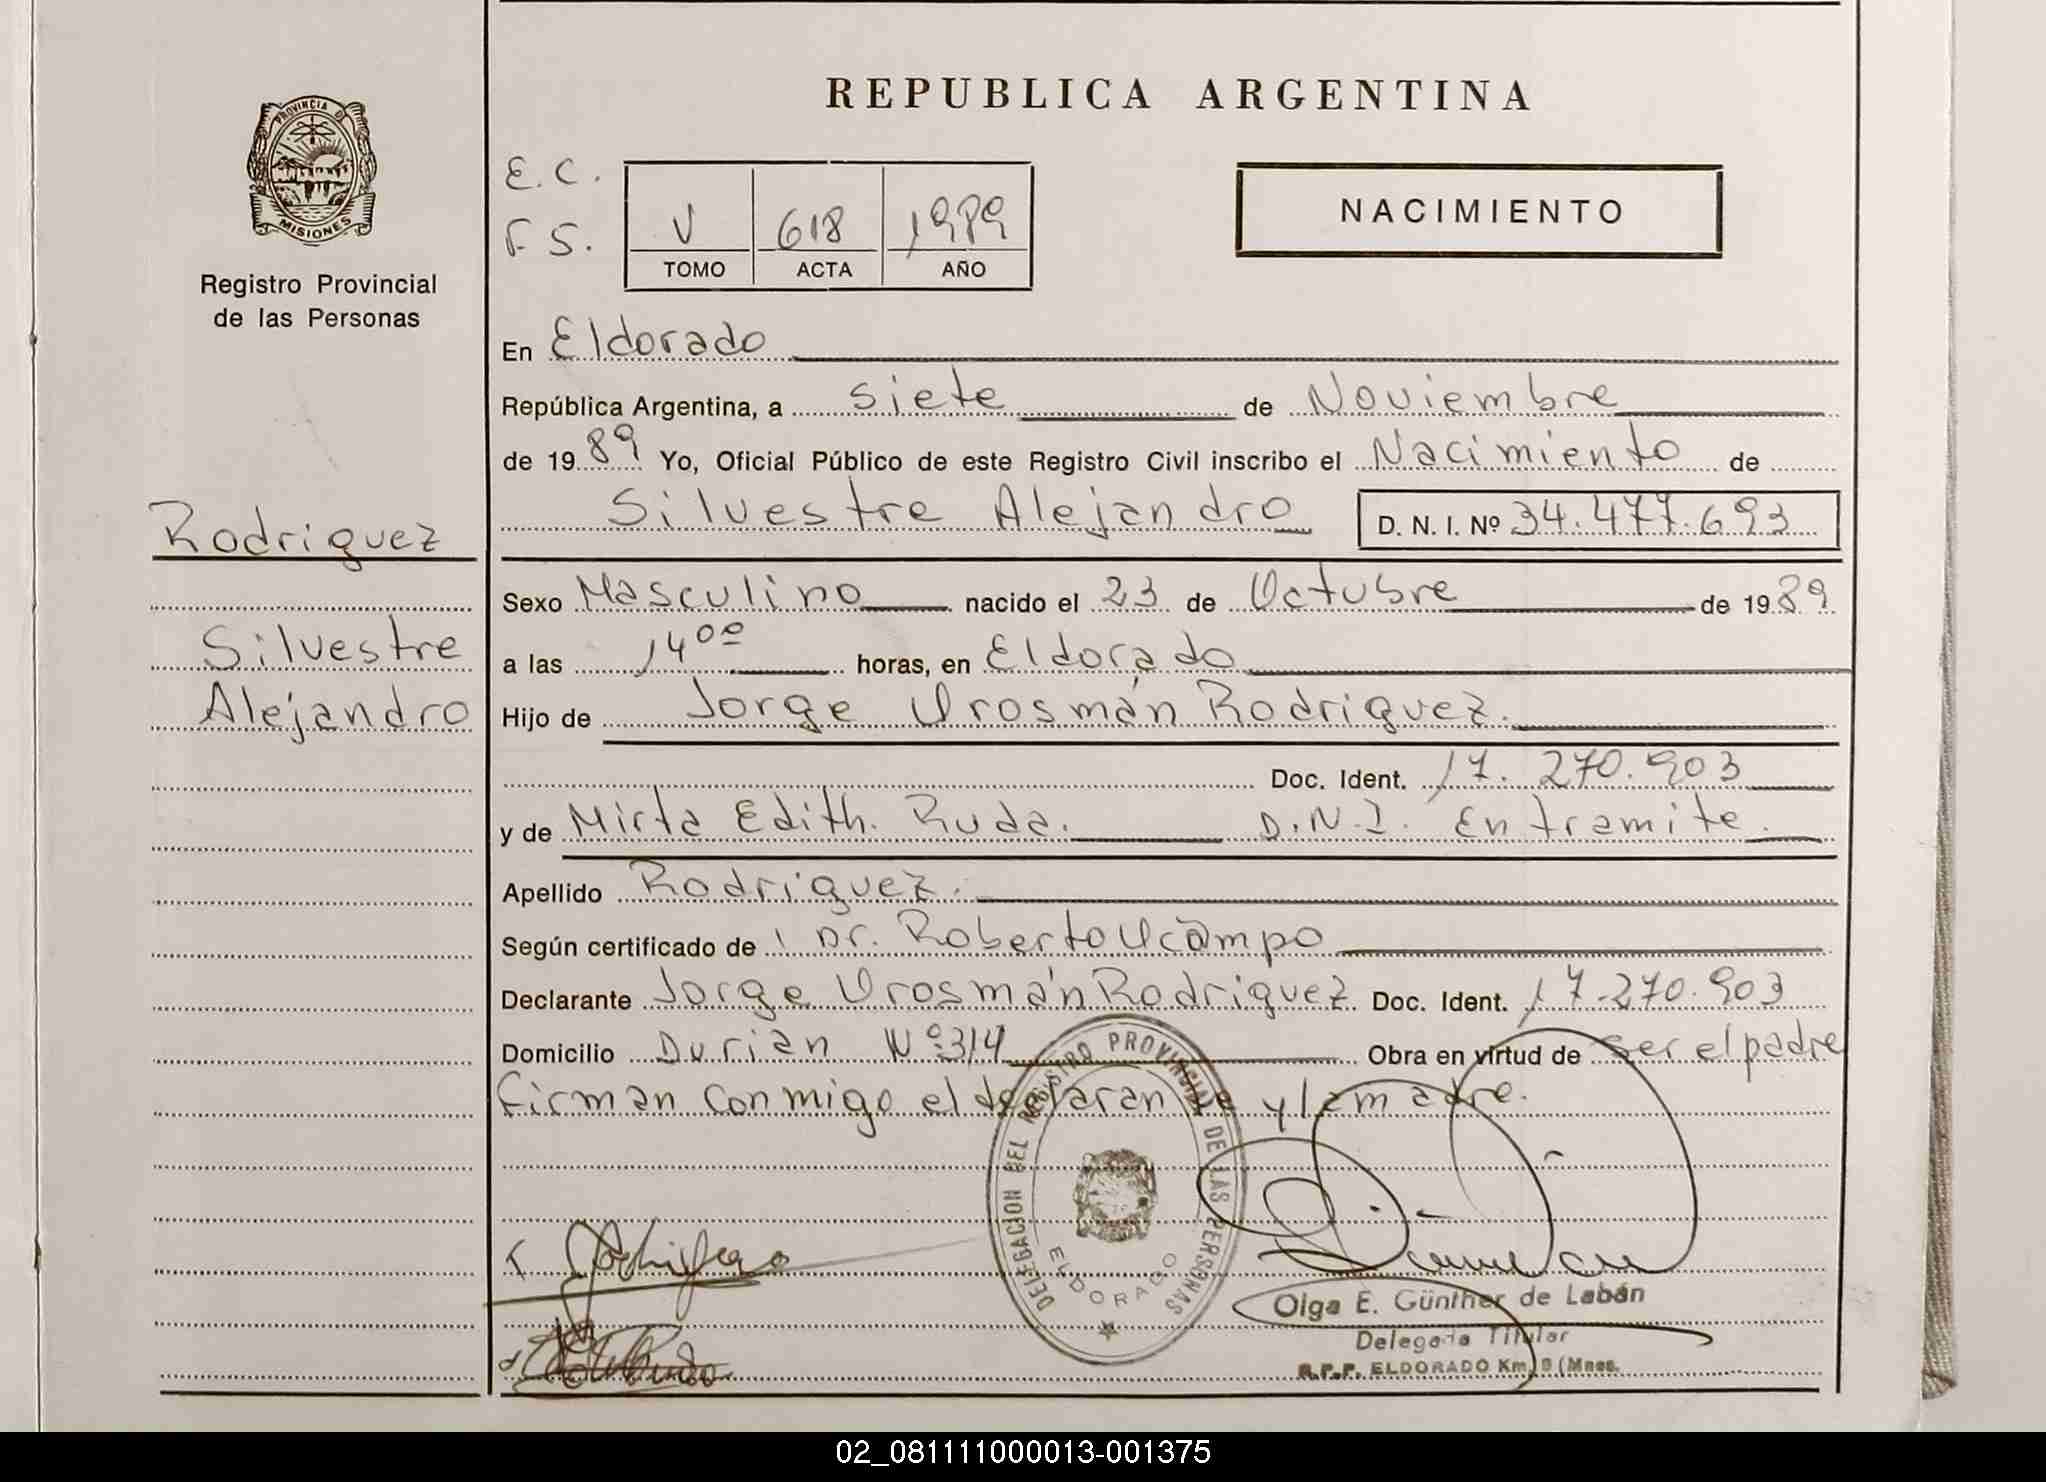 REPUBLICA ARGENTINA
PROVINCIA DE
MISIONES
Registro Provincial
de las Personas
E. C.
F S.
V 618 1989
TOMO ACTA AÑO
NACIMIENTO
En Eldorado
República Argentina, a siete de Noviembre
de 1989 Yo, Oficial Público de este Registro Civil inscribo el Nacimiento de
Silvestre Alejandro D. N. I. Nº 34.477.693
Rodriguez
Silvestre
Alejandro
Sexo Masculino nacido el 23 de Octubre de 1989
a las 14 00 horas, en Eldorado
Hijo de Jorge Orosmán Rodriguez.
Doc. Ident. 17.270.903
y de Mirta Edith. Ruda. D.N.I. En tramite.
Apellido Rodriguez.
Según certificado de Dr. Roberto Ocampo
Declarante Jorge Orosmán Rodriguez Doc. Ident. 17.270.903
Domicilio Durian Nº 314 Obra en virtud de ser el padre
firman conmigo el declarante y la madre.
DELEGACION DEL REGISTRO PROVINCIAL DE LAS PERSONAS
ELDORADO
Olga E. Günther de Labán
Delegada Titular
R.P.P. ELDORADO Km. 9 (Mnes.
02_081111000013-001375